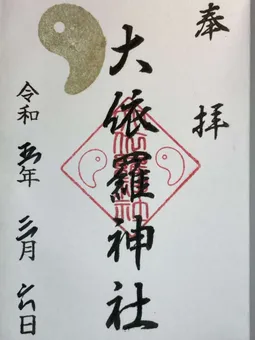 奉拝
大依羅神社
令和五年三月六日